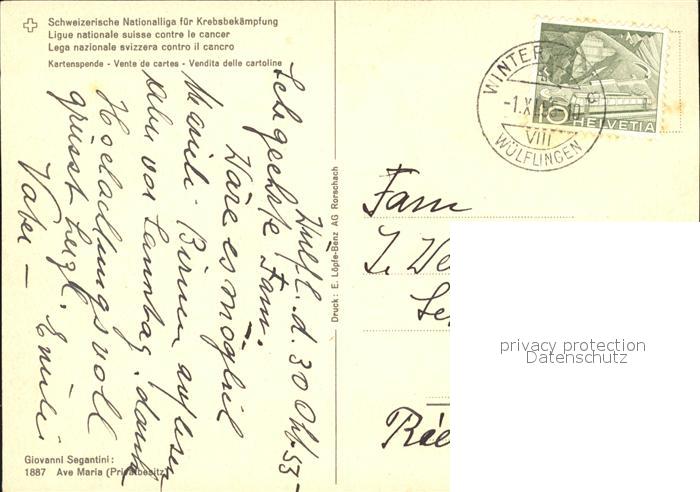 Schweizerische Nationalliga für Krebsbekämpfung
Ligue nationale suisse contre le cancer
Lega nazionale svizzera contro il cancro
Kartenspende - Vente de cartes - Vendita delle cartoline
Wülfl. d. 30 Okt. 53 –
Sehr geehrte Fam.
Wäre es möglich
Birnen auflesen
vor Samstag, dankt
Hochachtungsvoll
grüsst herzl. Emil
Vater –
Giovanni Segantini:
1887 Ave Maria (Privatbesitz)
Druck: E. Löpfe-Benz AG Rorschach
WINTER
-1.XI.
VIII
WÜLFLINGEN
10 HELVETIA
Fam
J. We
privacy protection
Datenschutz